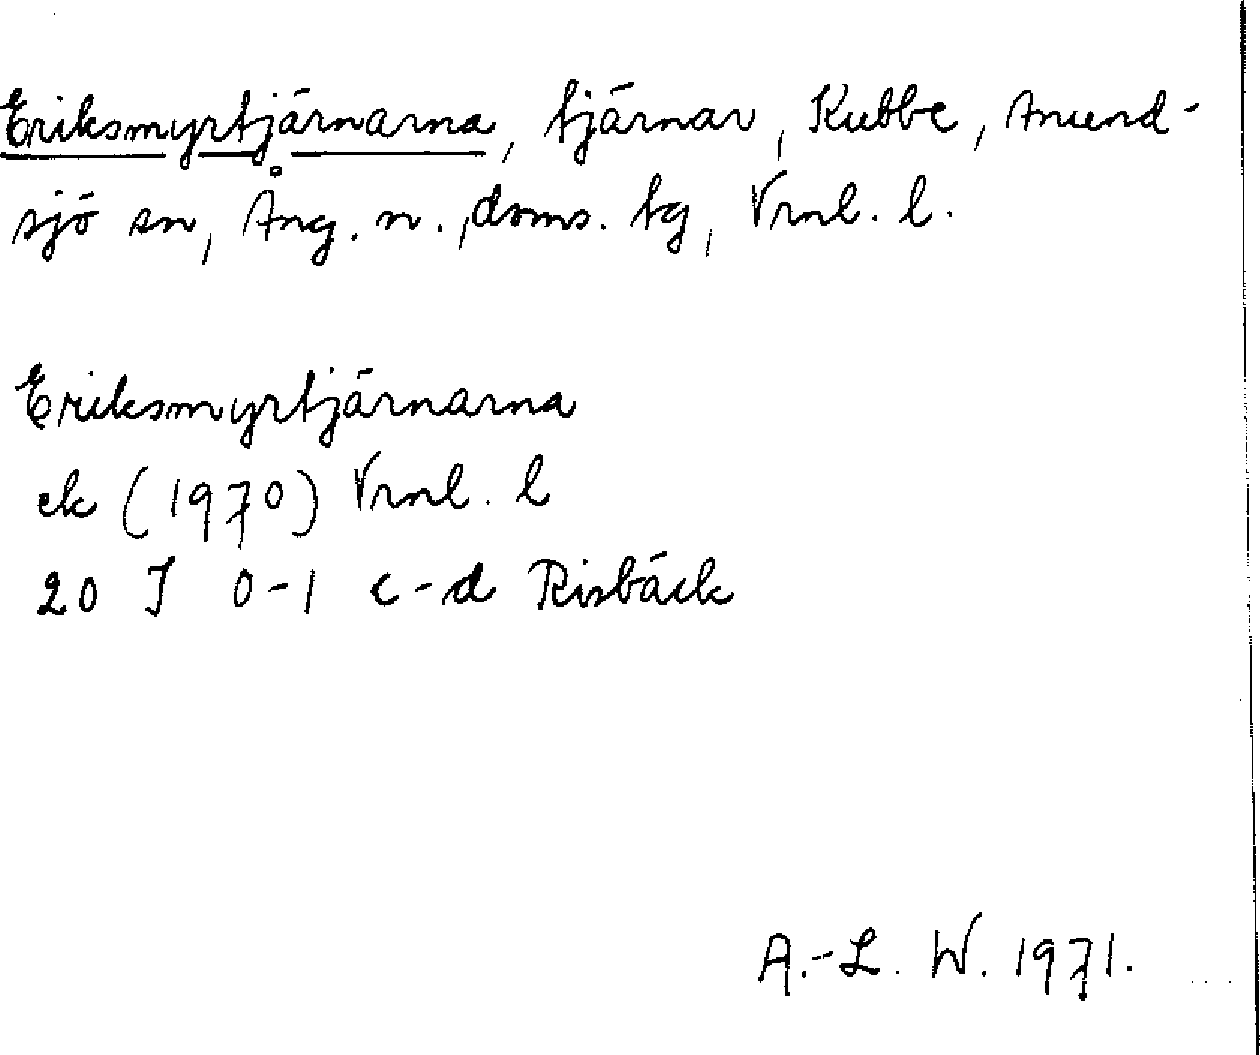 Eriksmyrtjärnarna, tjärnar, Kubbe, Anund-
sjö sn, Ång. n., doms. tg, Vrnl. l.
Eriksmyrtjärnarna
ek (1970) Vrnl. l
20 J 0-1 c-d Risbäck
A.-L. W. 1971.